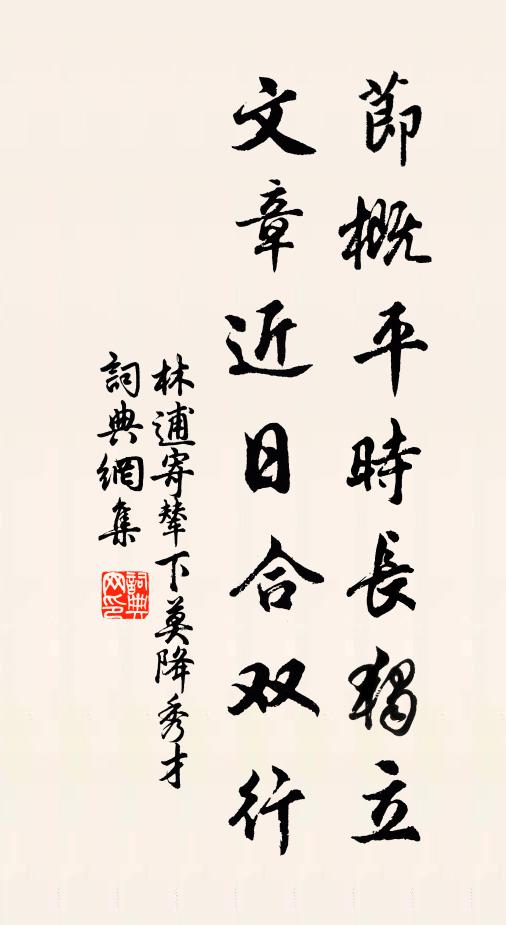 節概平時長獨立
文章近日合双行
林逋寄輦下莫降秀才
詞典網集
詞典网印